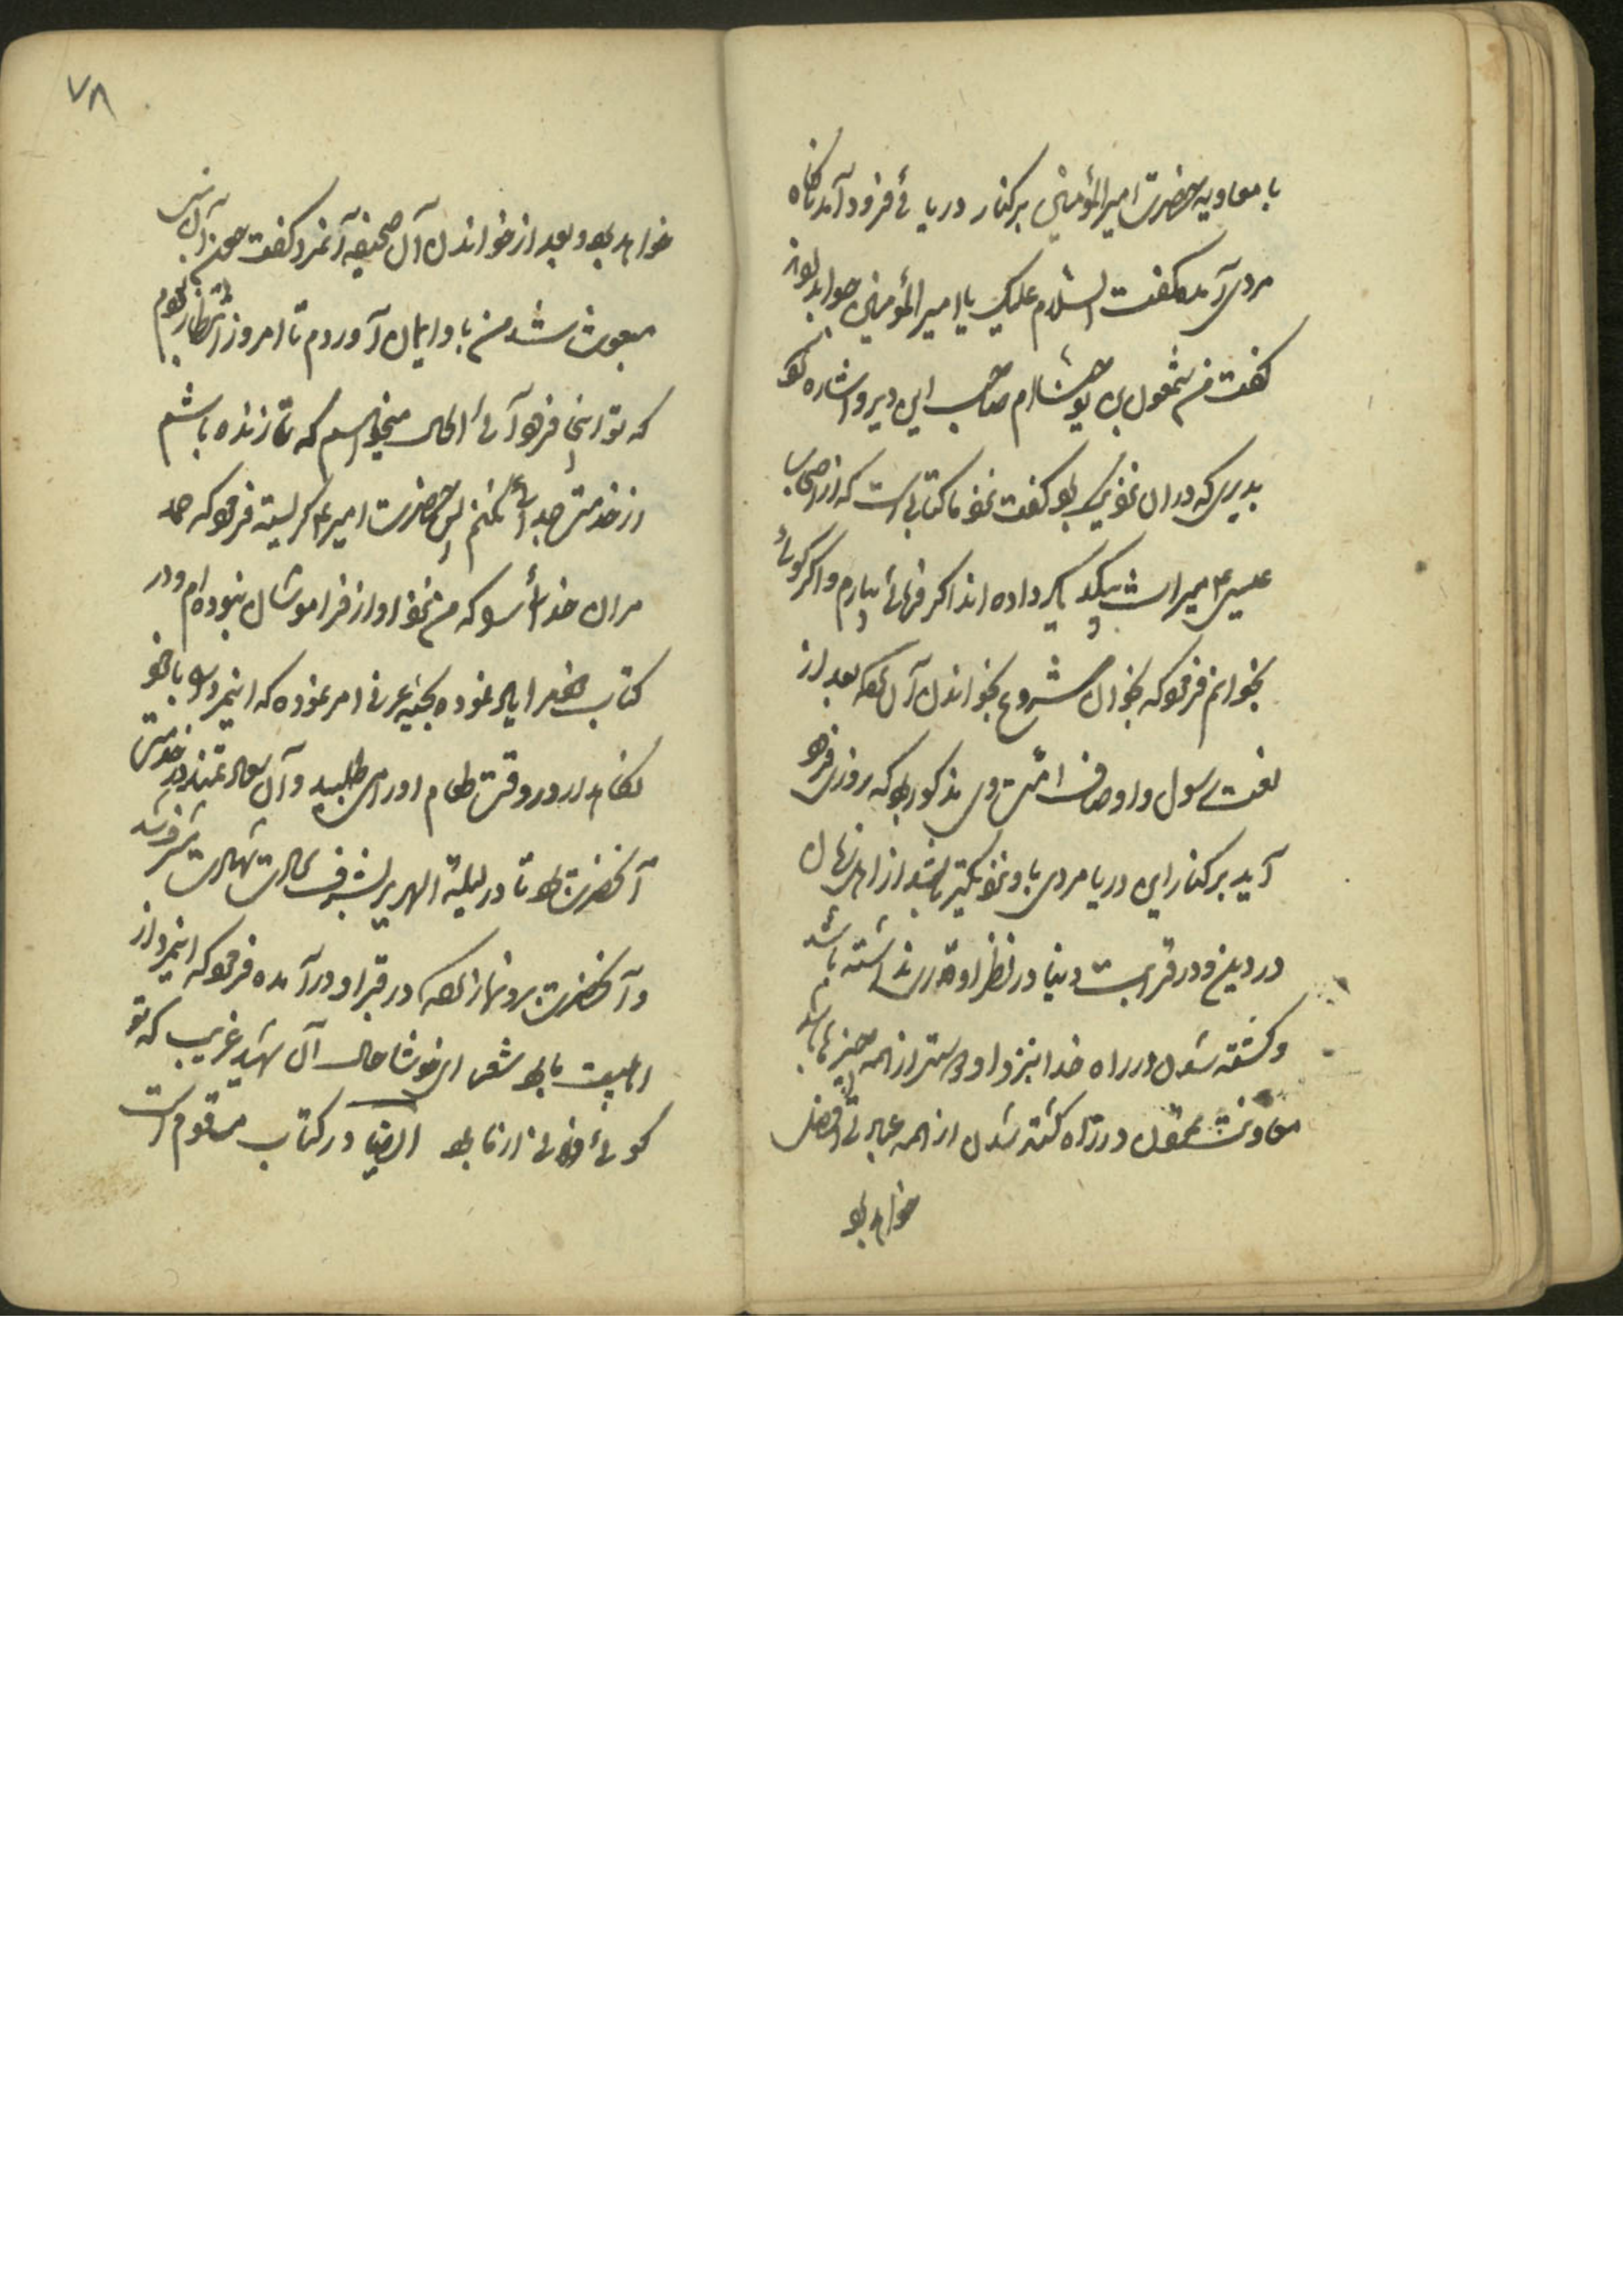 با معاویه حضرت امیرالمؤمنین بر کنار دریائی فرود آمد ناگاه
مردی آمد و گفت السلام علیک یا امیرالمؤمنین جواب
گفت من شمعون بن یوحنا ام صاحب این دیر و اشاره نمود
بدیری که دران نزدیکی بود گفت نزد ما کتابیست که از اصحاب
عیسی ع میراث بیکدیگر داده اند اگر فرمائی بیارم و اگر گوئی
بخوانم فرمود که بخوان شروع بخواندن آن نمود که بعد از
نعت رسول و اوصاف امت وی مذکور بود که روزی فرود
آید بر کنار این دریا مردی باو نزدیکتر باشد از اهل زمان
در دین و در قرابت دنیا در نظر او قدری نداشته باشد
و کشته شدن در راه خدا بنزد او دوستر از همه چیزها باشد
معاونتش نمودن در راه کشته شدن از همه عبادتی افضل
خواهد بود
۷۸
خواهد بود و بعد از خواندن آن صحیفه آنمرد گفت چون آن
مبعوث شد من باو ایمان آوردم تا امروز انتظار بودم
که تو اینجا فرود آئی الحال میخواهم که تا زنده باشم
از خدمت جدائی نکنم پس حضرت امیر ع گریسته فرمود که حمد
مران خدای را که من نزد او از فراموشان نبوده ام و در
کتاب خیر یاد نموده بحبه عرنی امر نموده که اینمرد را با خود
نگاهدار و در وقت طعام او را می طلبید و آن سعادتمند در خدمت
آنحضرت بود تا در لیلة الهریر بشرف سعادت شهادت مشرف شد
و آنحضرت برو نماز کرده در قبر او درآمده فرمود که اینمرد از
اهلبیت ما بود شعر ای خوشا حال آن شهید غریب که تو
گوئی فلانی از ما بود ایضا در کتاب مرقوم است